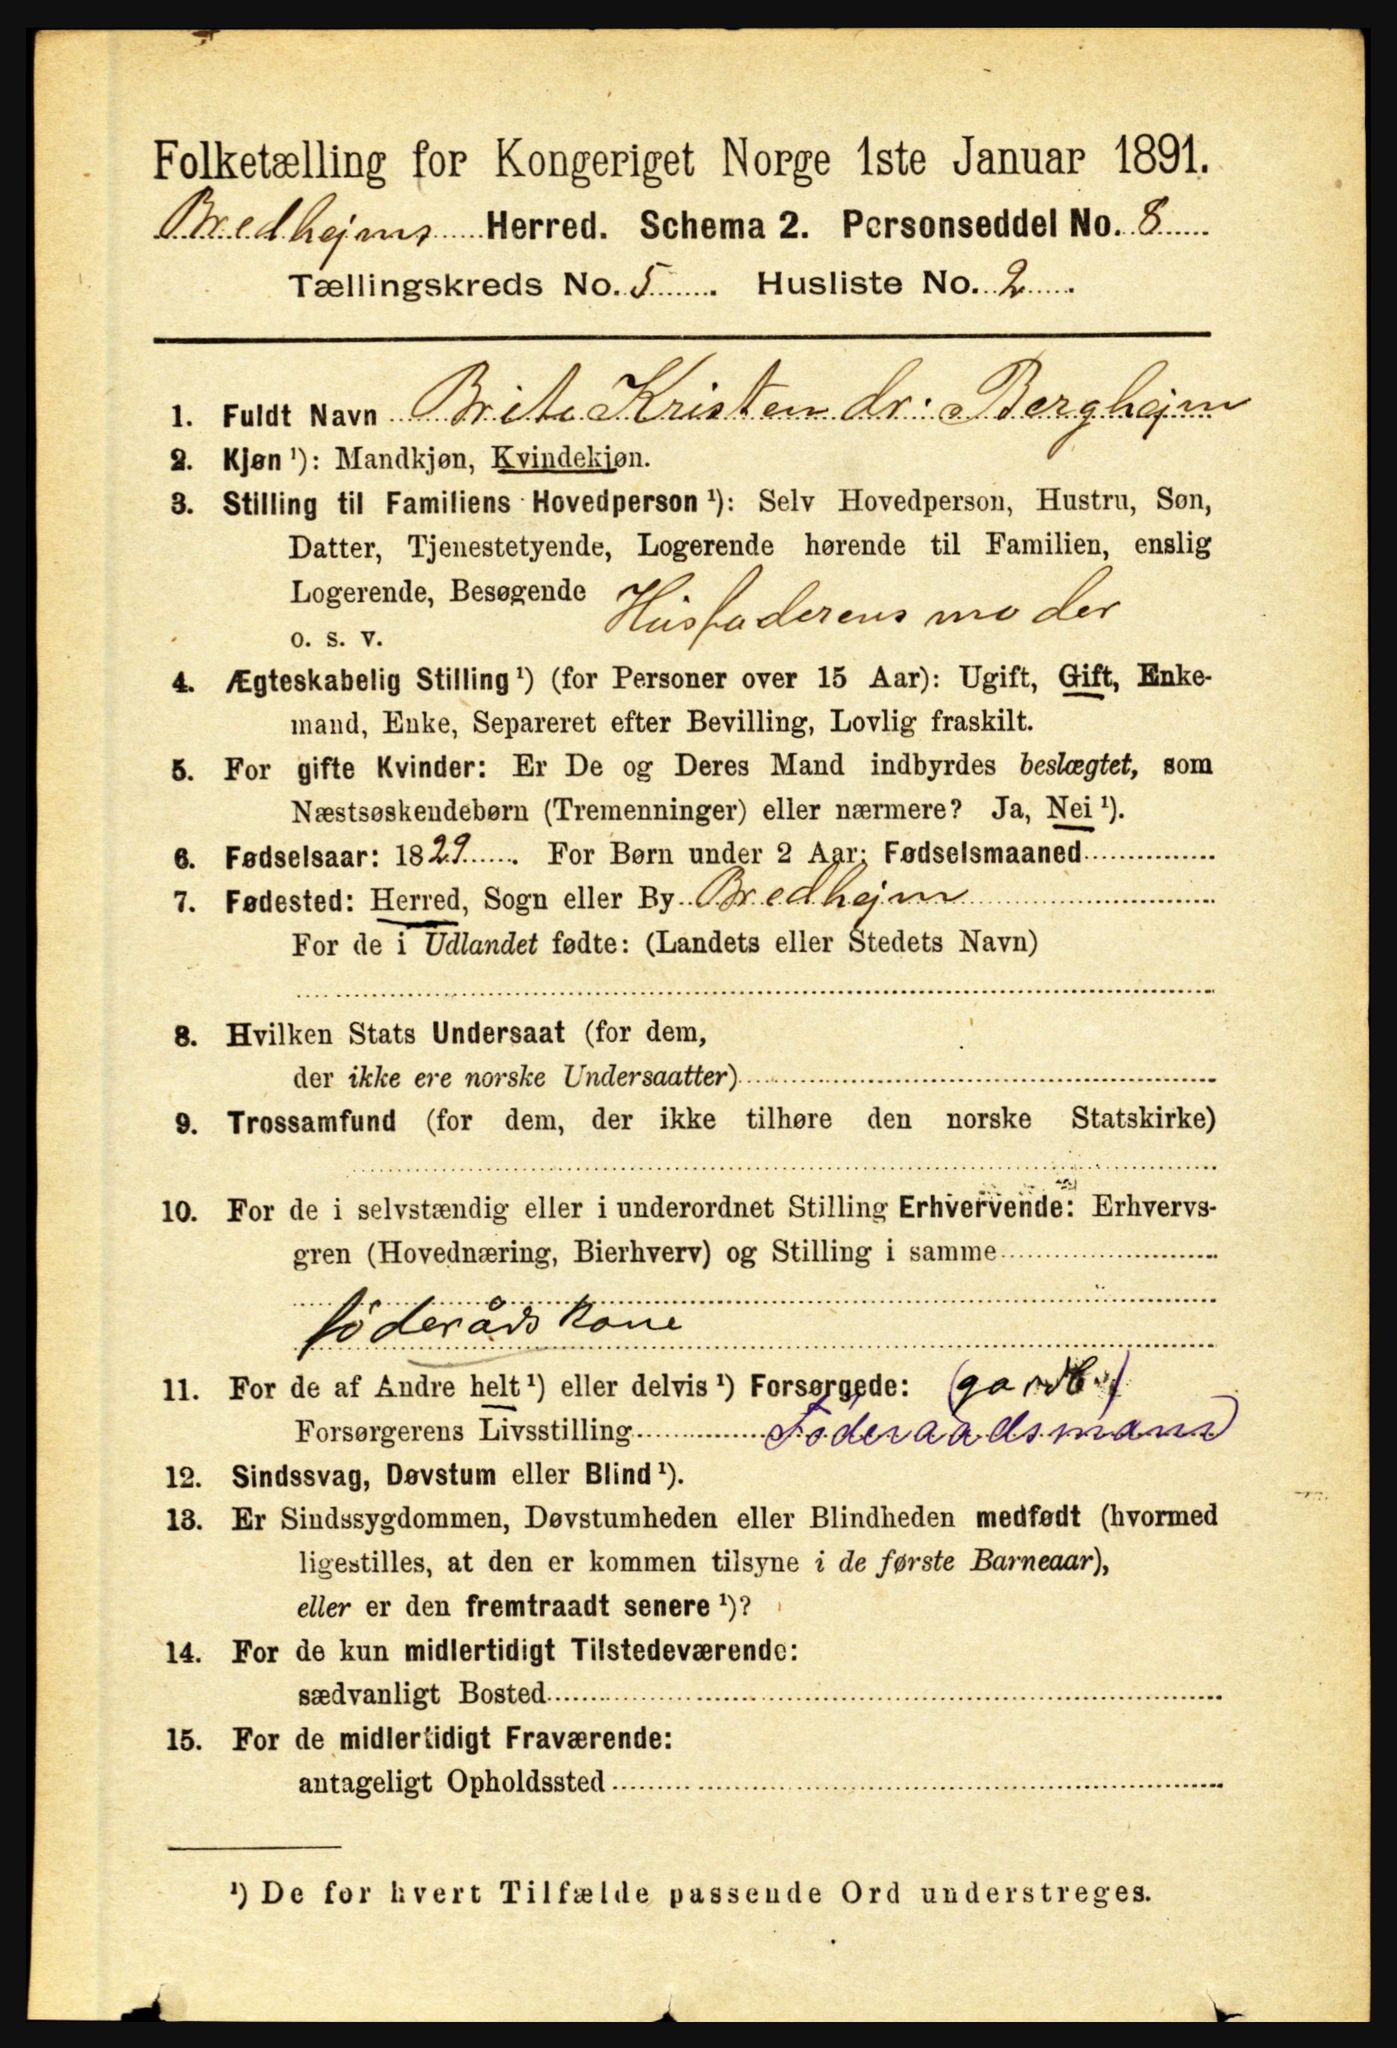 Folketælling for Kongeriget Norge 1ste Januar 1891.
Bredhejms Herred. Schema 2. Personseddel No. 8
Tællingskreds No. 5. Husliste No. 2.
1. Fuldt Navn Brite Kristen dr: Berghejm
2. Kjøn ¹): Mandkjøn, Kvindekjøn.
3. Stilling til Familiens Hovedperson ¹): Selv Hovedperson, Hustru, Søn,
Datter, Tjenestetyende, Logerende hørende til Familien, enslig
Logerende, Besøgende
o. s. v. Husfaderens moder
4. Ægteskabelig Stilling ¹) (for Personer over 15 Aar): Ugift, Gift, Enke-
mand, Enke, Separeret efter Bevilling, Lovlig fraskilt.
5. For gifte Kvinder: Er De og Deres Mand indbyrdes beslægtet, som
Næstsøskendebørn (Tremenninger) eller nærmere? Ja, Nei ¹).
6. Fødselsaar: 1829. For Børn under 2 Aar: Fødselsmaaned
7. Fødested: Herred, Sogn eller By Bredhejm
For de i Udlandet fødte: (Landets eller Stedets Navn)
8. Hvilken Stats Undersaat (for dem,
der ikke ere norske Undersaatter)
9. Trossamfund (for dem, der ikke tilhøre den norske Statskirke)
10. For de i selvstændig eller i underordnet Stilling Erhvervende: Erhvervs-
gren (Hovednæring, Bierhverv) og Stilling i samme
föderåds kone
11. For de af Andre helt ¹) eller delvis ¹) Forsørgede: (gardb.)
Forsørgerens Livsstilling Föderaadsmann
12. Sindssvag, Døvstum eller Blind ¹).
13. Er Sindssygdommen, Døvstumheden eller Blindheden medfødt (hvormed
ligestilles, at den er kommen tilsyne i de første Barneaar),
eller er den fremtraadt senere ¹)?
14. For de kun midlertidigt Tilstedeværende:
sædvanligt Bosted
15. For de midlertidigt Fraværende:
antageligt Opholdssted
¹) De for hvert Tilfælde passende Ord understreges.